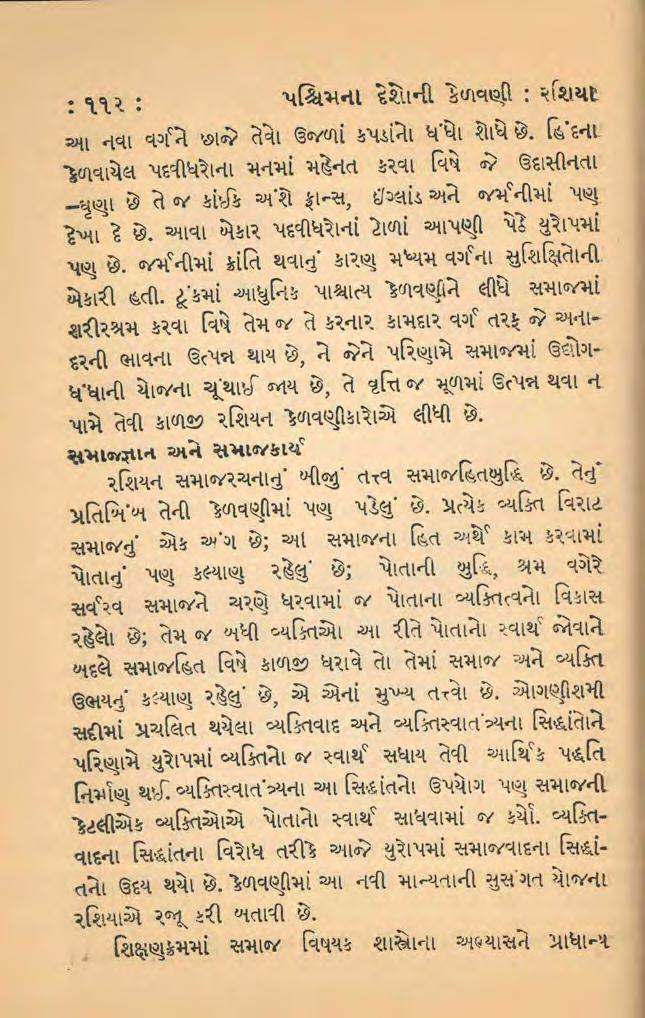 : ૧૧૨ : પશ્ચિમના દેશોની કેળવણી : રશિયા
આ નવા વર્ગને છાજે તેવો ઉજળાં કપડાંનો ધંધો શોધે છે. હિંદના
કેળવાયેલ પદવીધરોના મનમાં મહેનત કરવા વિષે જે ઉદાસીનતા
–ઘૃણા છે તે જ કાંઈક અંશે ફ્રાન્સ, ઈંગ્લાંડ અને જર્મનીમાં પણ
દેખા દે છે. આવા બેકાર પદવીધરોનાં ટોળાં આપણી પેઠે યુરોપમાં
પણ છે. જર્મનીમાં ક્રાંતિ થવાનું કારણ મધ્યમ વર્ગના સુશિક્ષિતોની
બેકારી હતી. ટૂંકમાં આધુનિક પાશ્ચાત્ય કેળવણીને લીધે સમાજમાં
શરીરશ્રમ કરવા વિષે તેમ જ તે કરનાર કામદાર વર્ગ તરફ જે અના-
દરની ભાવના ઉત્પન્ન થાય છે, ને જેને પરિણામે સમાજમાં ઉદ્યોગ-
ધંધાની યોજના ચૂંથાઈ જાય છે, તે વૃત્તિ જ મૂળમાં ઉત્પન્ન થવા ન
પામે તેવી કાળજી રશિયન કેળવણીકારોએ લીધી છે.
સમાજજ્ઞાન અને સમાજકાર્ય
રશિયન સમાજરચનાનું બીજું તત્ત્વ સમાજહિતબુદ્ધિ છે. તેનું
પ્રતિબિંબ તેની કેળવણીમાં પણ પડેલું છે. પ્રત્યેક વ્યક્તિ વિરાટ
સમાજનું એક અંગ છે; આ સમાજના હિત અર્થે કામ કરવામાં
પોતાનું પણ કલ્યાણ રહેલું છે; પોતાની બુદ્ધિ, શ્રમ વગેરે
સર્વસ્વ સમાજને ચરણે ધરવામાં જ પોતાના વ્યક્તિત્વનો વિકાસ
રહેલો છે; તેમ જ બધી વ્યક્તિઓ આ રીતે પોતાનો સ્વાર્થ જોવાને
બદલે સમાજહિત વિષે કાળજી ધરાવે તો તેમાં સમાજ અને વ્યક્તિ
ઉભયનું કલ્યાણ રહેલું છે, એ એનાં મુખ્ય તત્ત્વો છે. ઓગણીશમી
સદીમાં પ્રચલિત થયેલા વ્યક્તિવાદ અને વ્યક્તિસ્વાતંત્ર્યના સિદ્ધાંતોને
પરિણામે યુરોપમાં વ્યક્તિનો જ સ્વાર્થ સધાય તેવી આર્થિક પદ્ધતિ
નિર્માણ થઈ. વ્યક્તિસ્વાતંત્ર્યના આ સિદ્ધાંતનો ઉપયોગ પણ સમાજની
કેટલીએક વ્યક્તિઓએ પોતાનો સ્વાર્થ સાધવામાં જ કર્યો. વ્યક્તિ-
વાદના સિદ્ધાંતના વિરોધ તરીકે આજે યુરોપમાં સમાજવાદના સિદ્ધાં-
તનો ઉદય થયો છે. કેળવણીમાં આ નવી માન્યતાની સુસંગત યોજના
રશિયાએ રજૂ કરી બતાવી છે.
શિક્ષણક્રમમાં સમાજ વિષયક શાસ્ત્રોના અભ્યાસને પ્રાધાન્ય